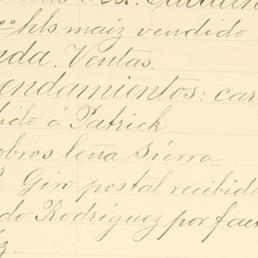 hls maiz vendido
nda. Ventas.
endamientos: car
dido á Patrick
obros leña Sierra
Giro postal recibido
do Rodríguez por fac